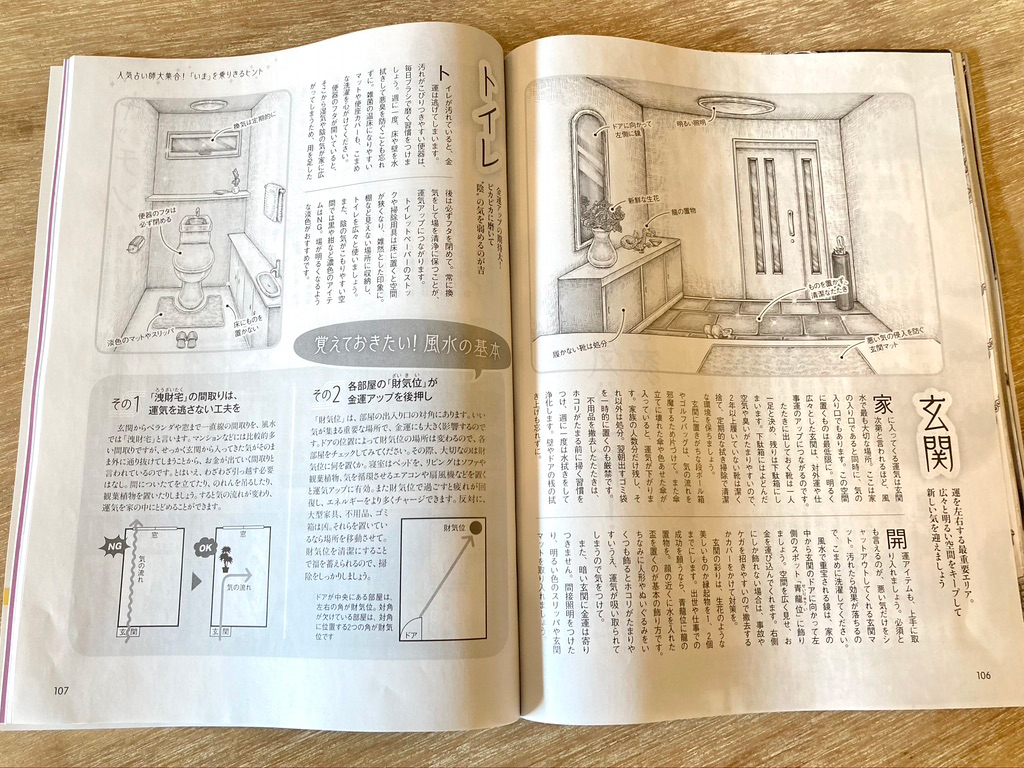 玄関
運を左右する最重要エリア。
広々と明るい空間をキープして
新しい気を迎えましょう
家に入ってくる運気は玄関
次第と言われるほど、風
水で最も大切な場所。ここは家
の入り口であると同時に、気の
入り口でもあります。この空間
に置くものは最低限に。明るく
広々とした玄関は、対外運や仕
事運のアップにつながるのです。
たたきに出しておく靴は一人
一足と決め、残りは下駄箱にし
まいます。下駄箱にはよどんだ
空気や臭いがたまりやすいので、
2年以上履いていない靴は潔く
捨て、定期的な拭き掃除で清潔
な環境を保ちましょう。
玄関に置きがちな段ボール箱
やゴルフバッグが、気の流れを
邪魔するためNGです。また傘
立てに壊れた傘や色あせた傘が
入っていると、運気が下がりま
す。家族の人数分だけ残し、そ
れ以外は処分。翌朝出すゴミ袋
を一時的に置くのも厳禁です。
不用品を撤去したたたきは、
ホコリがたまる前に掃く習慣を
つけ、週に一度は水拭きをして
浄化します。壁やドアの桟の拭
き上げも忘れずに。
開運アイテムも、上手に取
り入れましょう。必須と
も言えるのが、悪い気だけをシ
ャットアウトしてくれる玄関マ
ット。汚れたら効果が落ちるの
で、こまめに洗濯してください。
風水で重宝される鏡は、家の
中から玄関のドアに向かって左
側のスポット「青龍位」に飾り
ましょう。空間を広く見せ、お
金を運び込んでくれます。右側
にしか飾れない場合は、事故や
ケガを招きやすいので撤去する
かカバーをかけて対策を。
玄関の彩りは、生花のような
美しいものか縁起物を1、2個
までにします。出世や仕事での
成功を願うなら、青龍位に龍の
置物を。顔の近くに水を入れた
盃を置くのが基本の飾り方です。
ちなみに人形やぬいぐるみをい
くつも飾るとホコリがたまりや
すいうえ、運気が吸い取られて
しまうので気をつけて。
また、暗い玄関に金運は寄り
つきません。間接照明をつけた
り、明るい色のスリッパや玄関
マットを取り入れましょう。
ドアに向かって
左側に鏡
明るい照明
新鮮な生花
龍の置物
ものを置かず
清潔なたたき
履かない靴は処分
悪い気の侵入を防ぐ
玄関マット
106
人気占い師大集合!「いま」を乗りきるヒント
トイレ
金運アップの期待大!
ピカピカに磨いて
“陰”の気を弱めるのが吉
トイレが汚れていると、金
運は逃げてしまいます。
汚れがこびりつきやすい便器は、
毎日ブラシで磨く習慣をつけま
しょう。週に一度、床や壁を水
拭きして悪臭を防ぐことも忘れ
ずに。雑菌の温床になりやすい
マットや便座カバーも、こまめ
な洗濯を心がけてください。
便器のフタが開いていると、
そこから湿気や陰の気が家に広
がってしまうため、用を足した
後は必ずフタを閉めて。常に換
気をして場を清浄に保つことが、
運気アップにつながります。
トイレットペーパーのストッ
クや掃除用具は床に置くと空間
が狭くなり、雑然とした印象に。
棚など見えない場所に収納し、
トイレを広々と使いましょう。
また、陰の気がこもりやすい空
間では黒や紺など濃色のアイテ
ムはNG。場が明るくなるよう
な淡色がおすすめです。
換気は定期的に
便器のフタは
必ず閉める
床にものを
置かない
淡色のマットやスリッパ
覚えておきたい!風水の基本
その1
ろうざいたく
「洩財宅」の間取りは、
運気を逃さない工夫を
玄関からベランダや窓まで一直線の間取りを、風水
では「洩財宅」と言います。マンションなどには比較的多
い間取りですが、せっかく玄関から入ってきた気がそのま
ま外に通り抜けてしまうことから、お金が出ていく間取りと
言われているのです。とはいえ、わざわざ引っ越す必要
はなし。間についたてを立てたり、のれんを吊るしたり、
観葉植物を置いたりしましょう。すると気の流れが変わり、
運気を家の中にとどめることができます。
NG
窓
気の流れ
玄関
OK
窓
気の流れ
玄関
その2
ざいきい
各部屋の「財気位」が
金運アップを後押し
「財気位」は、部屋の出入り口の対角にあります。いい
気が集まる重要な場所で、金運にも大きく影響するので
す。ドアの位置によって財気位の場所は変わるので、各
部屋をチェックしてみてください。その際、大切なのは財
気位に何を置くか。寝室はベッドを、リビングはソファや
観葉植物、気を循環させるエアコンや扇風機などを置く
と運気アップに有効。また財気位で過ごすと疲れが回
復し、エネルギーをより多くチャージできます。反対に、
大型家具、不用品、ゴミ
箱は凶。それらを置いてい
るなら場所を移動させて。
財気位を清潔にすること
で福を蓄えられるので、掃
除をしっかりしましょう。
ドアが中央にある部屋は、
左右の角が財気位。対角
が欠けている部屋は、対角
に位置する2つの角が財気
位です
財気位
ドア
107